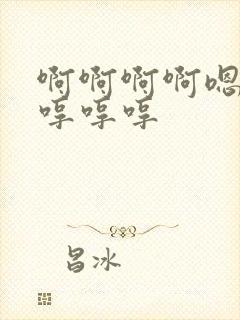 啊啊啊啊嗯
哼哼哼
昌冰